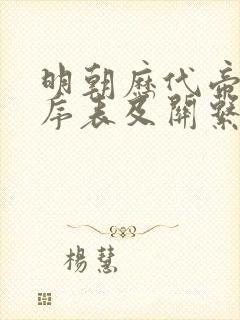 明朝歷代帝
序表及關繫
楊慧